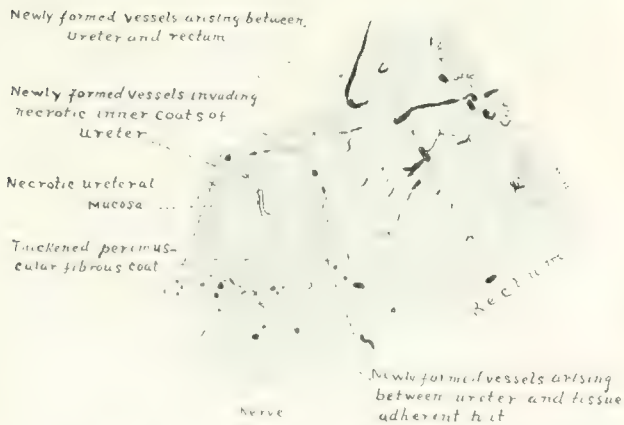 Newly formed vessels arising between
Ureter and rectum
Newly formed vessels invading
necrotic inner coats of
Ureter
Necrotic ureteral
Mucosa
Thickened perimus-
cular fibrous coat
Rectum
Newly formed vessels arising
between ureter and tissue
adherent to it
Nerve